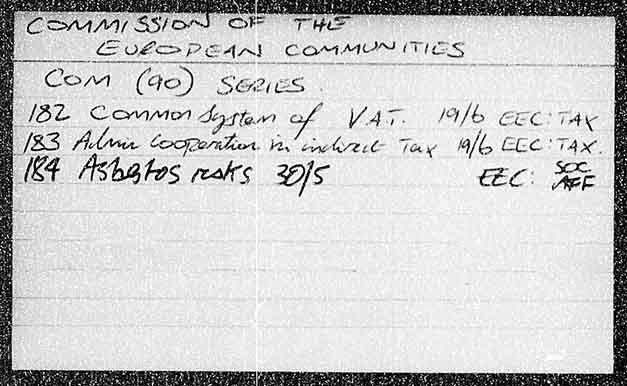 COMMISSION OF THE
EUROPEAN COMMUNITIES
COM (90) SERIES.
182 Common System of V.A.T. 19/6 EEC: TAX
183 Admin Cooperation in indirect Tax 19/6 EEC: TAX.
184 Asbestos risks 30/5 EEC: SOC AFF